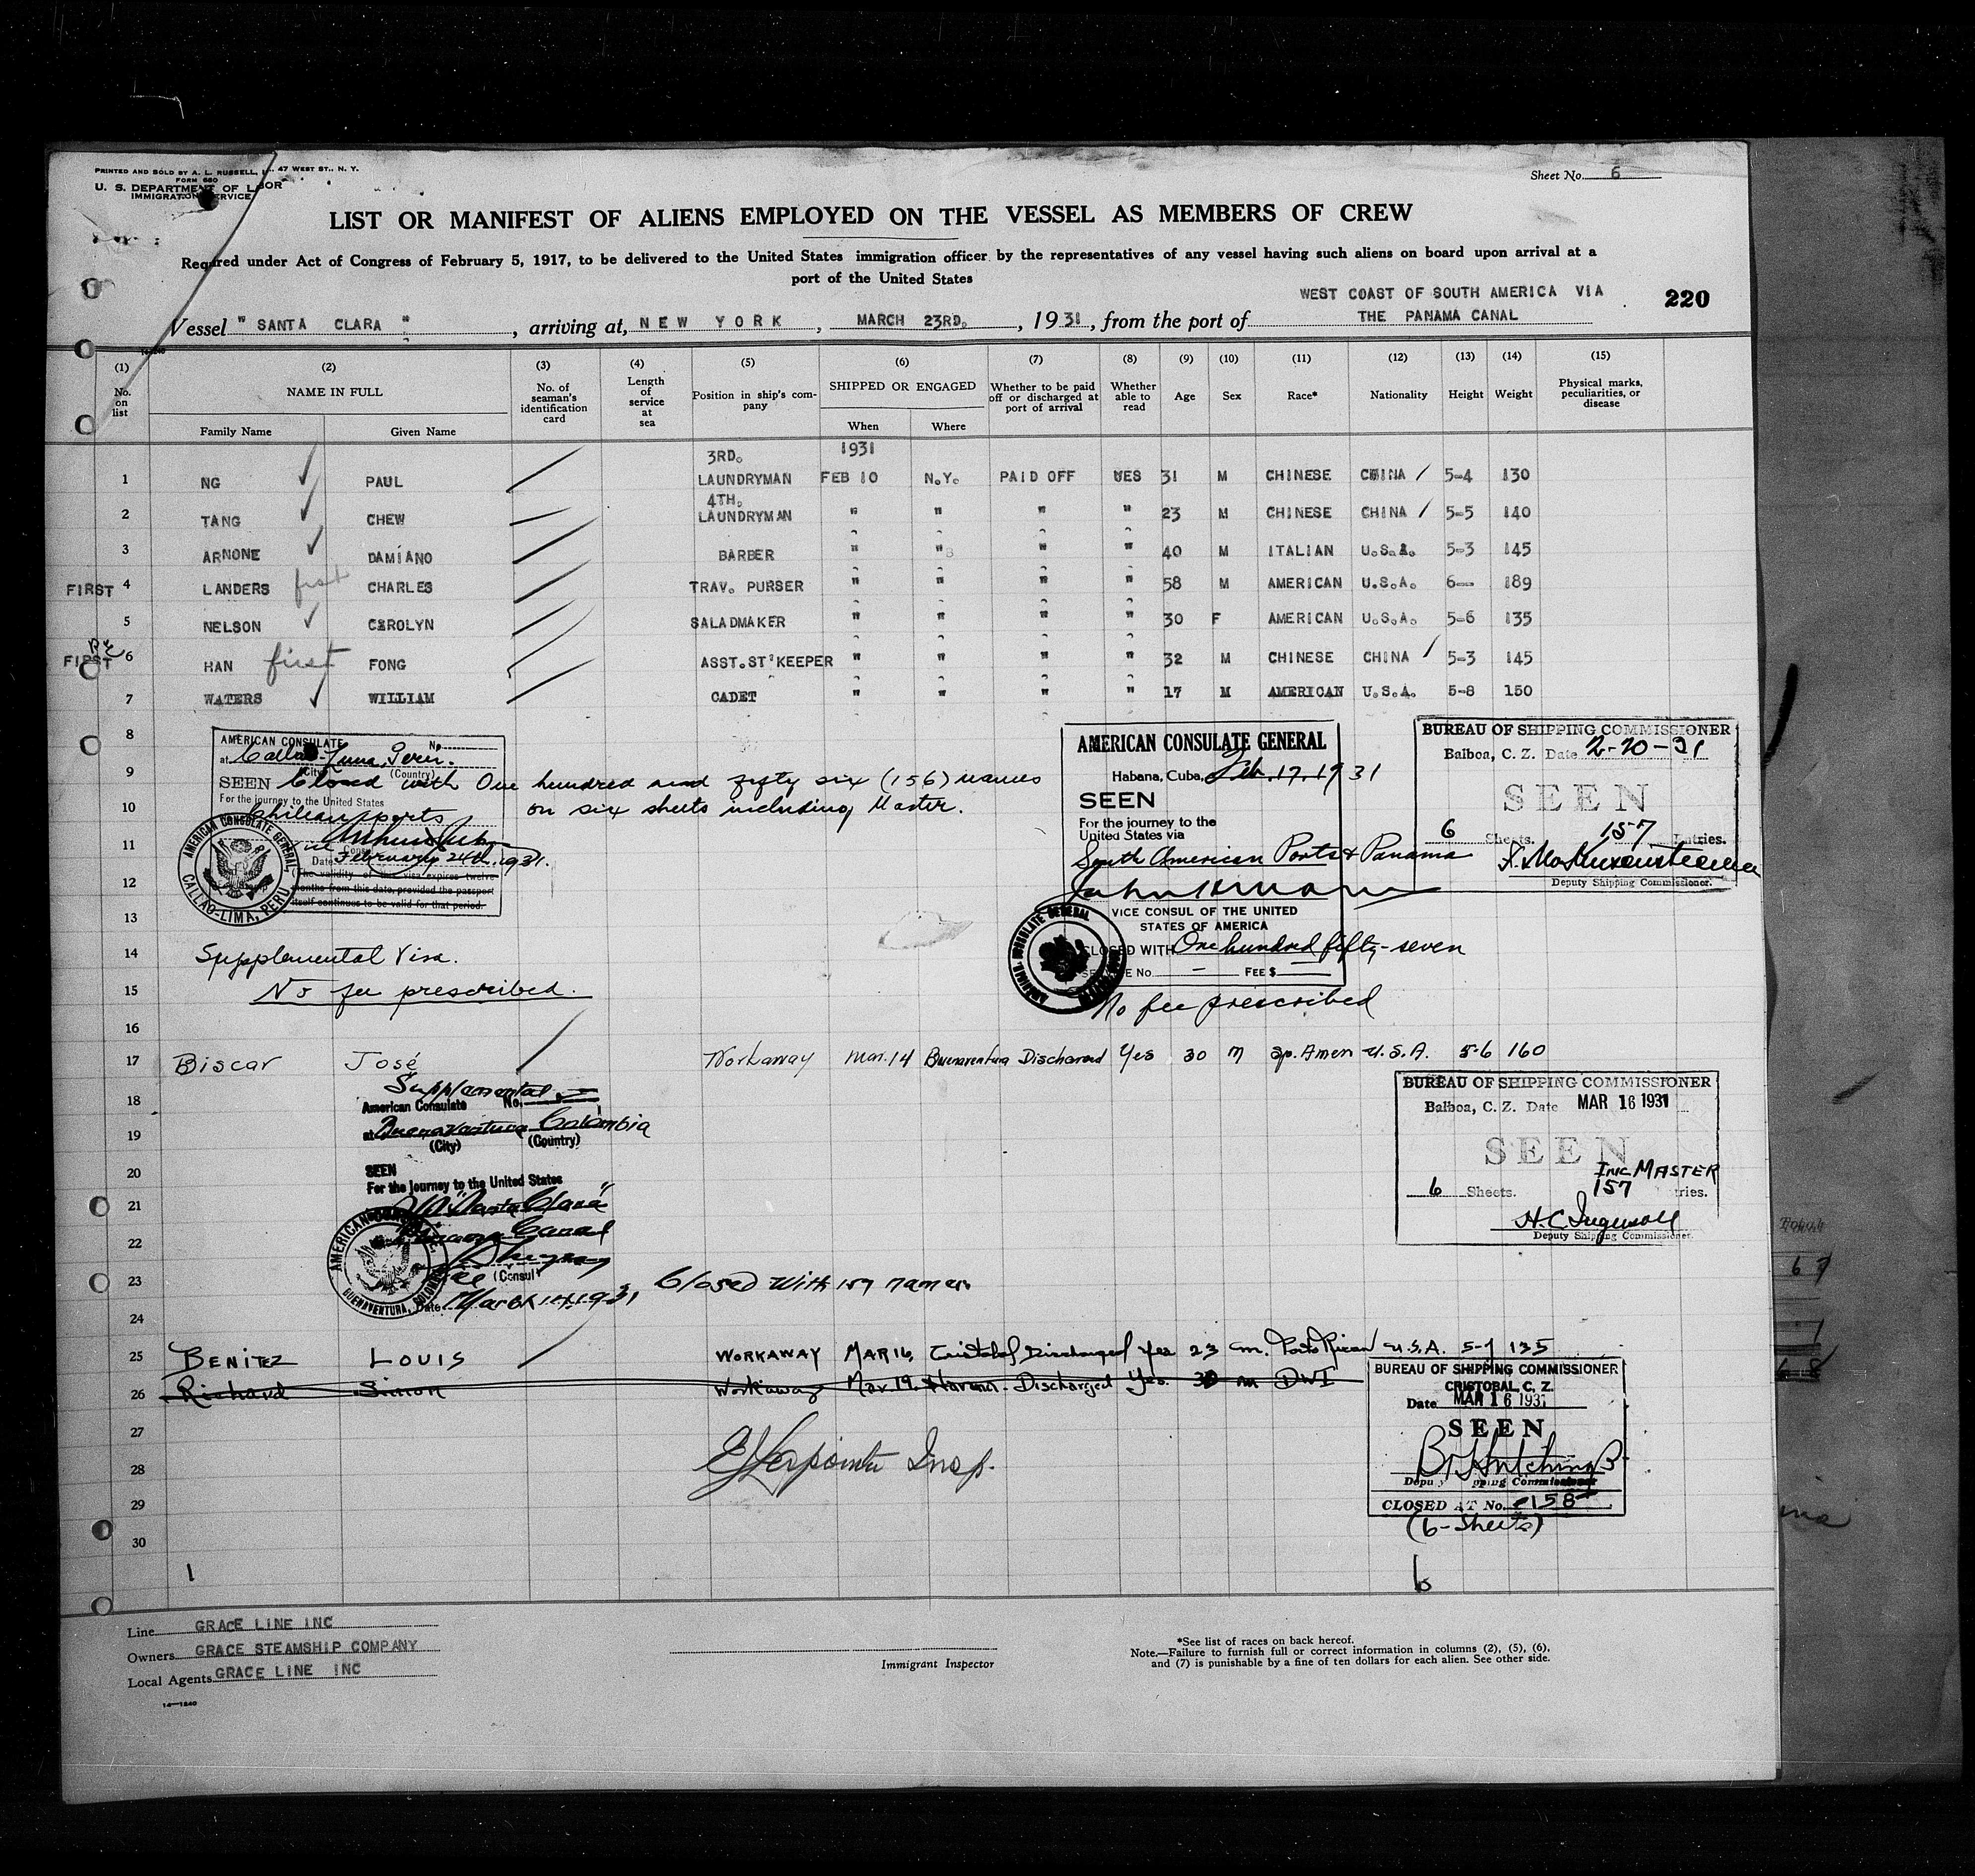 PRINTED AND SOLD BY A. L. RUSSELL, 47 WEST ST., N. Y.
FORM 680
U. S. DEPARTMENT OF LABOR
IMMIGRATION SERVICE
Sheet No. 6
LIST OR MANIFEST OF ALIENS EMPLOYED ON THE VESSEL AS MEMBERS OF CREW
Required under Act of Congress of February 5, 1917, to be delivered to the United States immigration officer by the representatives of any vessel having such aliens on board upon arrival at a
port of the United States
WEST COAST OF SOUTH AMERICA VIA
220
Vessel " SANTA CLARA ", arriving at, NEW YORK, MARCH 23RD., 1931, from the port of THE PANAMA CANAL
(1) (2) (3) (4) (5) (6) (7) (8) (9) (10) (11) (12) (13) (14) (15)
No. on list NAME IN FULL No. of seaman's identification card Length of service at sea Position in ship's company SHIPPED OR ENGAGED Whether to be paid off or discharged at port of arrival Whether able to read Age Sex Race* Nationality Height Weight Physical marks, peculiarities, or disease
Family Name Given Name When Where
3RD. 1931
1 NG PAUL LAUNDRYMAN FEB 10 N.Y. PAID OFF YES 31 M CHINESE CHINA 5-4 130
4TH.
2 TANG CHEW LAUNDRYMAN " " " " 23 M CHINESE CHINA 5-5 140
3 ARNONE DAMIANO BARBER " " " " 40 M ITALIAN U.S.A. 5-3 145
FIRST 4 LANDERS first CHARLES TRAV. PURSER " " " " 58 M AMERICAN U.S.A. 6— 189
5 NELSON CAROLYN SALADMAKER " " " " 30 F AMERICAN U.S.A. 5-6 135
FIRST 6 HAN first FONG ASST.ST'KEEPER " " " " 32 M CHINESE CHINA 5-3 145
7 WATERS WILLIAM CADET " " " " 17 M AMERICAN U.S.A. 5-8 150
8
9
10
11
12
13
14
15
16
AMERICAN CONSULATE No.
at Callao-Lima, Peru.
(City) (Country)
SEEN Closed with One hundred and fifty six (156) names
For the journey to the United States
on six sheets including Master.
Chilean ports
Consul
Date February 24th, 1931.
The validity of this visa expires twelve
months from this date, provided the passport
itself continues to be valid for that period.
AMERICAN CONSULATE GENERAL
CALLAO-LIMA, PERU
Supplemental Visa.
No fee prescribed.
AMERICAN CONSULATE GENERAL
Habana, Cuba, Feb. 17, 1931
SEEN
For the journey to the
United States via
South American Ports & Panama
VICE CONSUL OF THE UNITED
STATES OF AMERICA
CLOSED WITH One hundred fifty-seven
SERVICE No. — FEE $ —
AMERICAN CONSULATE GENERAL
No fee prescribed
BUREAU OF SHIPPING COMMISSIONER
Balboa, C. Z. Date 2-20-31
SEEN
6 Sheets. 157 Entries.
Deputy Shipping Commissioner.
17 Biscar José Workaway Mar. 14 Buenaventura Discharged Yes 30 M Sp. Amer U.S.A. 5-6 160
18
19
20
21
22
23
24
Supplemental
American Consulate No.
at Buenaventura Colombia
(City) (Country)
SEEN
For the journey to the United States
"Santa Clara"
Panama Canal
(Consul)
Date March 14, 1931
AMERICAN CONSULATE
BUENAVENTURA, COLOMBIA
Closed with 157 names
BUREAU OF SHIPPING COMMISSIONER
Balboa, C. Z. Date MAR 16 1931
SEEN
INC MASTER
6 Sheets. 157 Entries.
H.C. Ingersoll
Deputy Shipping Commissioner.
25 BENITEZ LOUIS WORKAWAY MAR 16, Cristobal Discharged Yes 23 m. Porto Rican U.S.A. 5-7 135
26 Richard Simon Workaway Mar. 19. Havana. Discharged Yes. 30 m DWI
27
28
29
30
Insp.
BUREAU OF SHIPPING COMMISSIONER
CRISTOBAL, C. Z.
Date MAR 16 1931
SEEN
Deputy Shipping Commissioner
CLOSED AT No. 158
(6-Sheets)
1
6
Line GRACE LINE INC
Owners GRACE STEAMSHIP COMPANY
Local Agents GRACE LINE INC
14—1240
Immigrant Inspector
*See list of races on back hereof.
Note.—Failure to furnish full or correct information in columns (2), (5), (6),
and (7) is punishable by a fine of ten dollars for each alien. See other side.